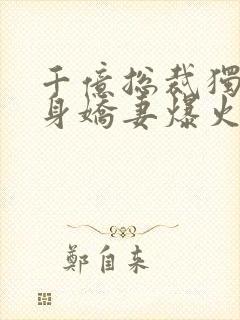 千億總裁獨
身嬌妻爆火
鄭自來